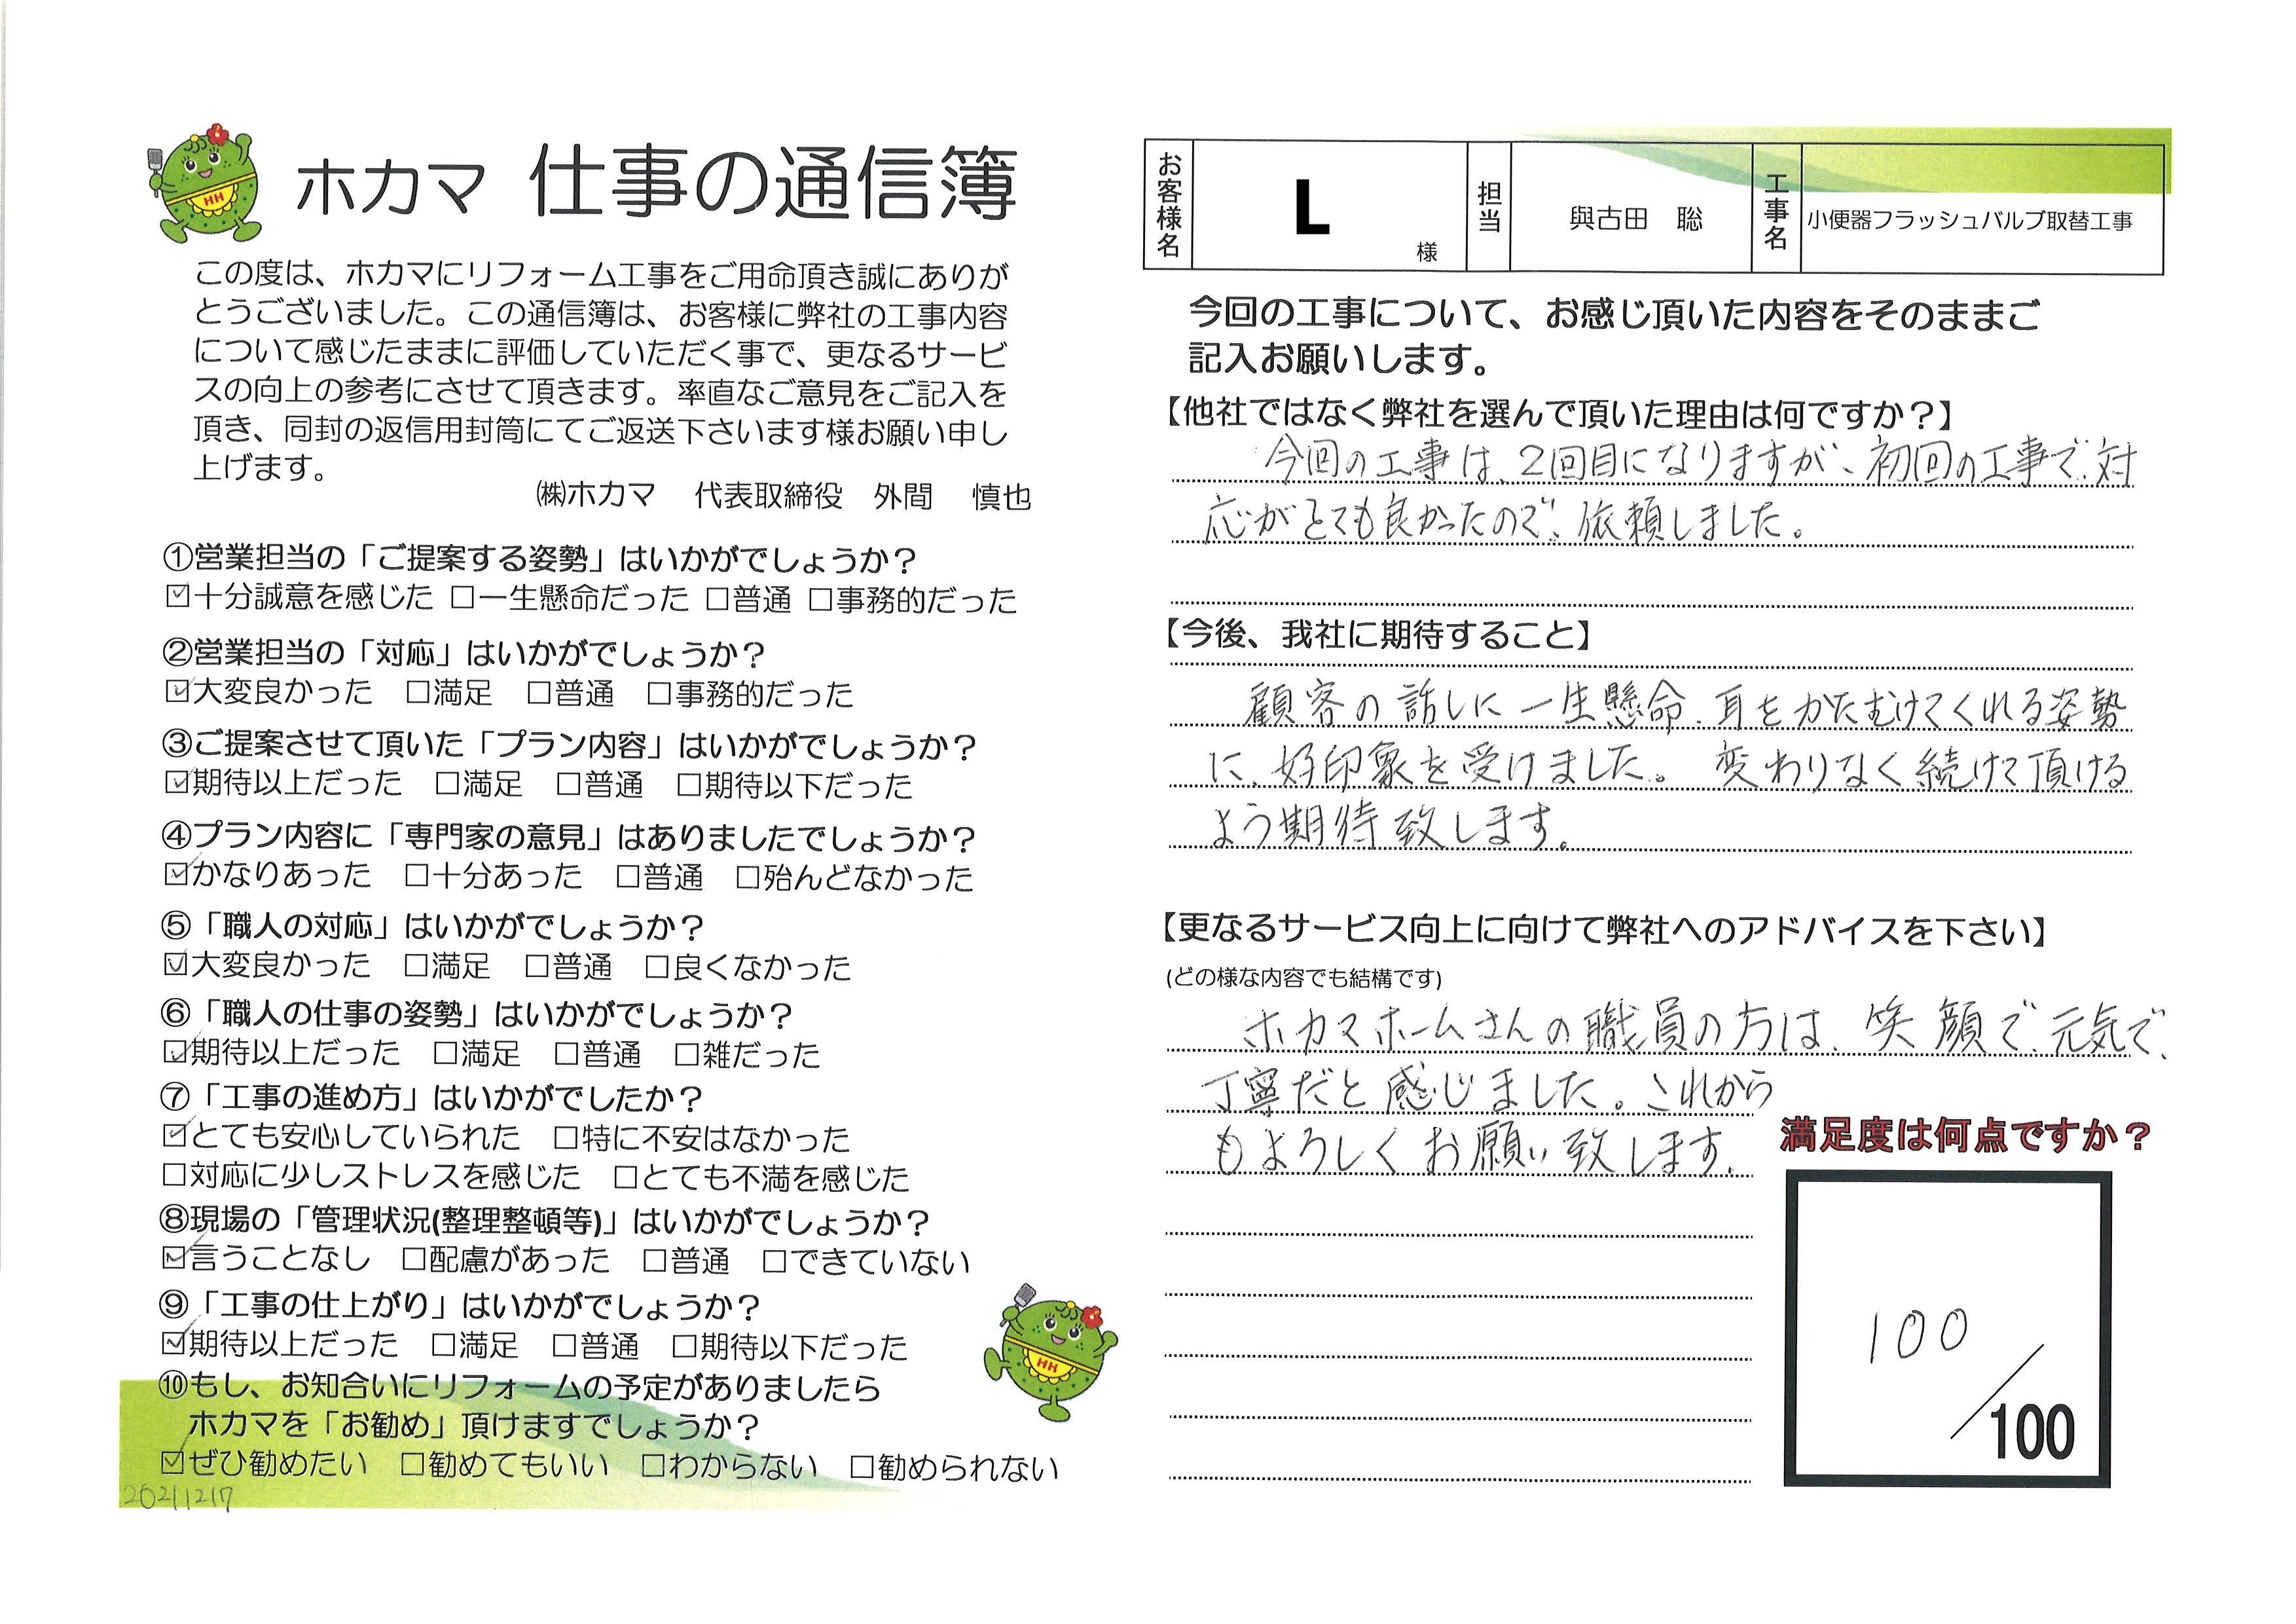 ホカマ 仕事の通信簿
この度は、ホカマにリフォーム工事をご用命頂き誠にありが
とうございました。この通信簿は、お客様に弊社の工事内容
について感じたままに評価していただく事で、更なるサービ
スの向上の参考にさせて頂きます。率直なご意見をご記入を
頂き、同封の返信用封筒にてご返送下さいます様お願い申し
上げます。
㈱ホカマ 代表取締役 外間 慎也
①営業担当の「ご提案する姿勢」はいかがでしょうか？
☑十分誠意を感じた □一生懸命だった □普通 □事務的だった
②営業担当の「対応」はいかがでしょうか？
☑大変良かった □満足 □普通 □事務的だった
③ご提案させて頂いた「プラン内容」はいかがでしょうか？
☑期待以上だった □満足 □普通 □期待以下だった
④プラン内容に「専門家の意見」はありましたでしょうか？
☑かなりあった □十分あった □普通 □殆んどなかった
⑤「職人の対応」はいかがでしょうか？
☑大変良かった □満足 □普通 □良くなかった
⑥「職人の仕事の姿勢」はいかがでしょうか？
☑期待以上だった □満足 □普通 □雑だった
⑦「工事の進め方」はいかがでしたか？
☑とても安心していられた □特に不安はなかった
□対応に少しストレスを感じた □とても不満を感じた
⑧現場の「管理状況(整理整頓等)」はいかがでしょうか？
☑言うことなし □配慮があった □普通 □できていない
⑨「工事の仕上がり」はいかがでしょうか？
☑期待以上だった □満足 □普通 □期待以下だった
⑩もし、お知合いにリフォームの予定がありましたら
ホカマを「お勧め」頂けますでしょうか？
☑ぜひ勧めたい □勧めてもいい □わからない □勧められない
20211217
お客様名 L 様 担当 與古田 聡 工事名 小便器フラッシュバルブ取替工事
今回の工事について、お感じ頂いた内容をそのままご
記入お願いします。
【他社ではなく弊社を選んで頂いた理由は何ですか？】
今回の工事は、2回目になりますが、初回の工事で、対
応がとても良かったので、依頼しました。
【今後、我社に期待すること】
顧客の話しに一生懸命、耳をかたむけてくれる姿勢
に、好印象を受けました。変わりなく続けて頂ける
よう期待致します。
【更なるサービス向上に向けて弊社へのアドバイスを下さい】
(どの様な内容でも結構です)
ホカマホームさんの職員の方は、笑顔で、元気で、
丁寧だと感じました。これから
もよろしくお願い致します。
満足度は何点ですか？
100
/100
HH
HH